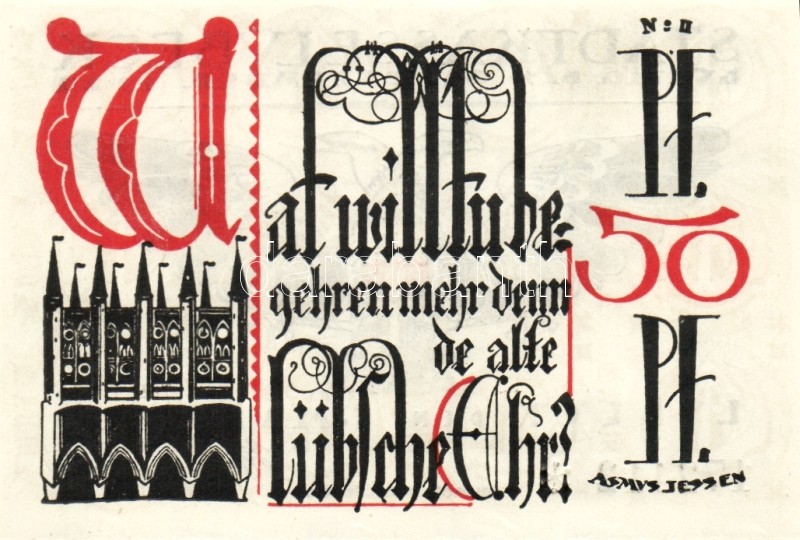 Wat willtu be=
gehren mehr denn
de alte
lübsche Ehr?
No: II
PF.
50
PF.
ASMUS JESSEN
darabanth